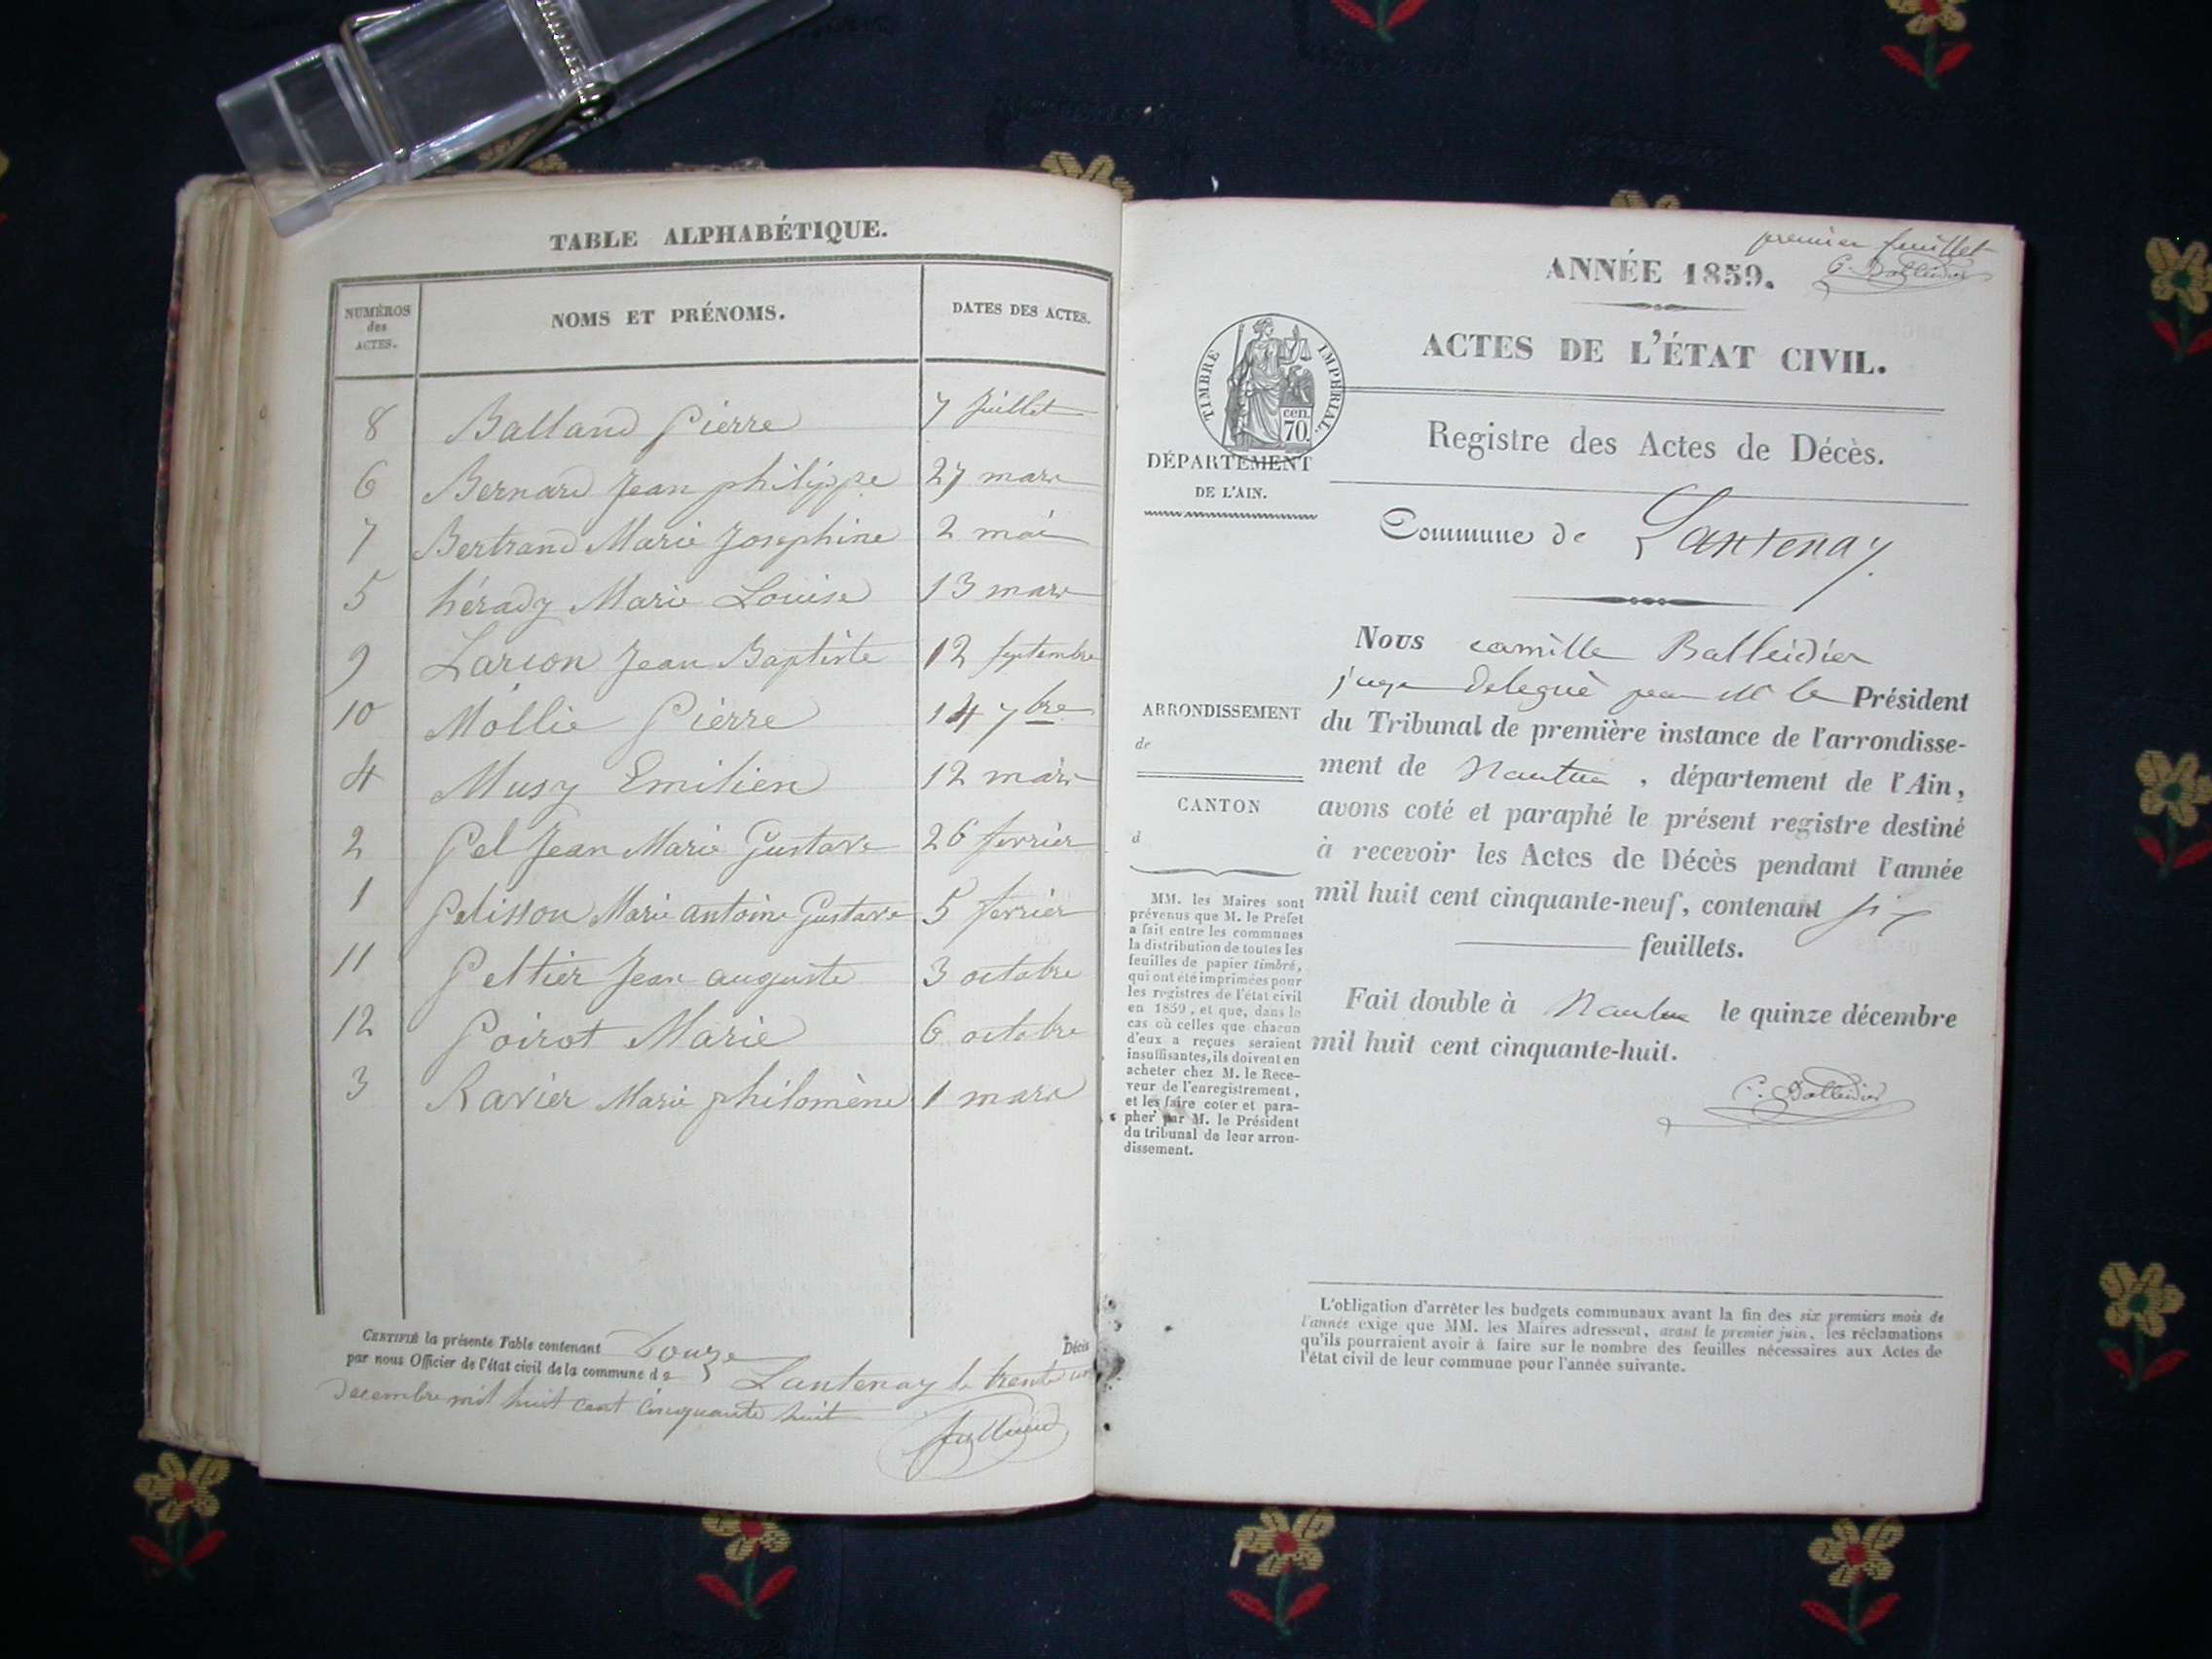 TABLE ALPHABÉTIQUE.
NUMÉROS des ACTES.
NOMS ET PRÉNOMS.
DATES DES ACTES.
8 Balland Pierre 7 Juillet
6 Bernard Jean philippe 27 mars
7 Bertrand Marie Josephine 2 mai
5 hérady Marie Louise 13 mars
9 Larcon Jean Baptiste 12 septembre
10 Mollie Pierre 14 7bre
4 Musy Emilien 12 mars
2 Pel Jean Marie Gustave 26 fevrier
1 Pelisson Marie antoine Gustave 5 fevrier
11 Peltier Jean auguste 3 octobre
12 Poirot Marie 6 octobre
3 Ravier Marie philomène 1 mars
CERTIFIÉ la présente Table contenant Douze Décès
par nous Officier de l'état civil de la commune de Lantenay le trente un
decembre mil huit cent cinquante huit
premier feuillet
C. Balleidier
ANNÉE 1859.
ACTES DE L'ÉTAT CIVIL.
TIMBRE IMPERIAL.
cen.
70.
Registre des Actes de Décès.
DÉPARTEMENT
DE L'AIN.
Commune de Lantenay
Nous camille Balleidier
juge delegué par M le Président
du Tribunal de première instance de l'arrondisse-
ment de Nantua, département de l'Ain,
avons coté et paraphé le présent registre destiné
à recevoir les Actes de Décès pendant l'année
mil huit cent cinquante-neuf, contenant six
feuillets.
Fait double à Nantua le quinze décembre
mil huit cent cinquante-huit.
C. Balleidier
ARRONDISSEMENT
de
CANTON
d
MM. les Maires sont
prévenus que M. le Préfet
a fait entre les communes
la distribution de toutes les
feuilles de papier timbré,
qui ont été imprimées pour
les registres de l'état civil
en 1859, et que, dans le
cas où celles que chacun
d'eux a reçues seraient
insuffisantes, ils doivent en
acheter chez M. le Rece-
veur de l'enregistrement,
et les faire coter et para-
pher par M. le Président
du tribunal de leur arron-
dissement.
L'obligation d'arrêter les budgets communaux avant la fin des six premiers mois de
l'année exige que MM. les Maires adressent, avant le premier juin, les réclamations
qu'ils pourraient avoir à faire sur le nombre des feuilles nécessaires aux Actes de
l'état civil de leur commune pour l'année suivante.